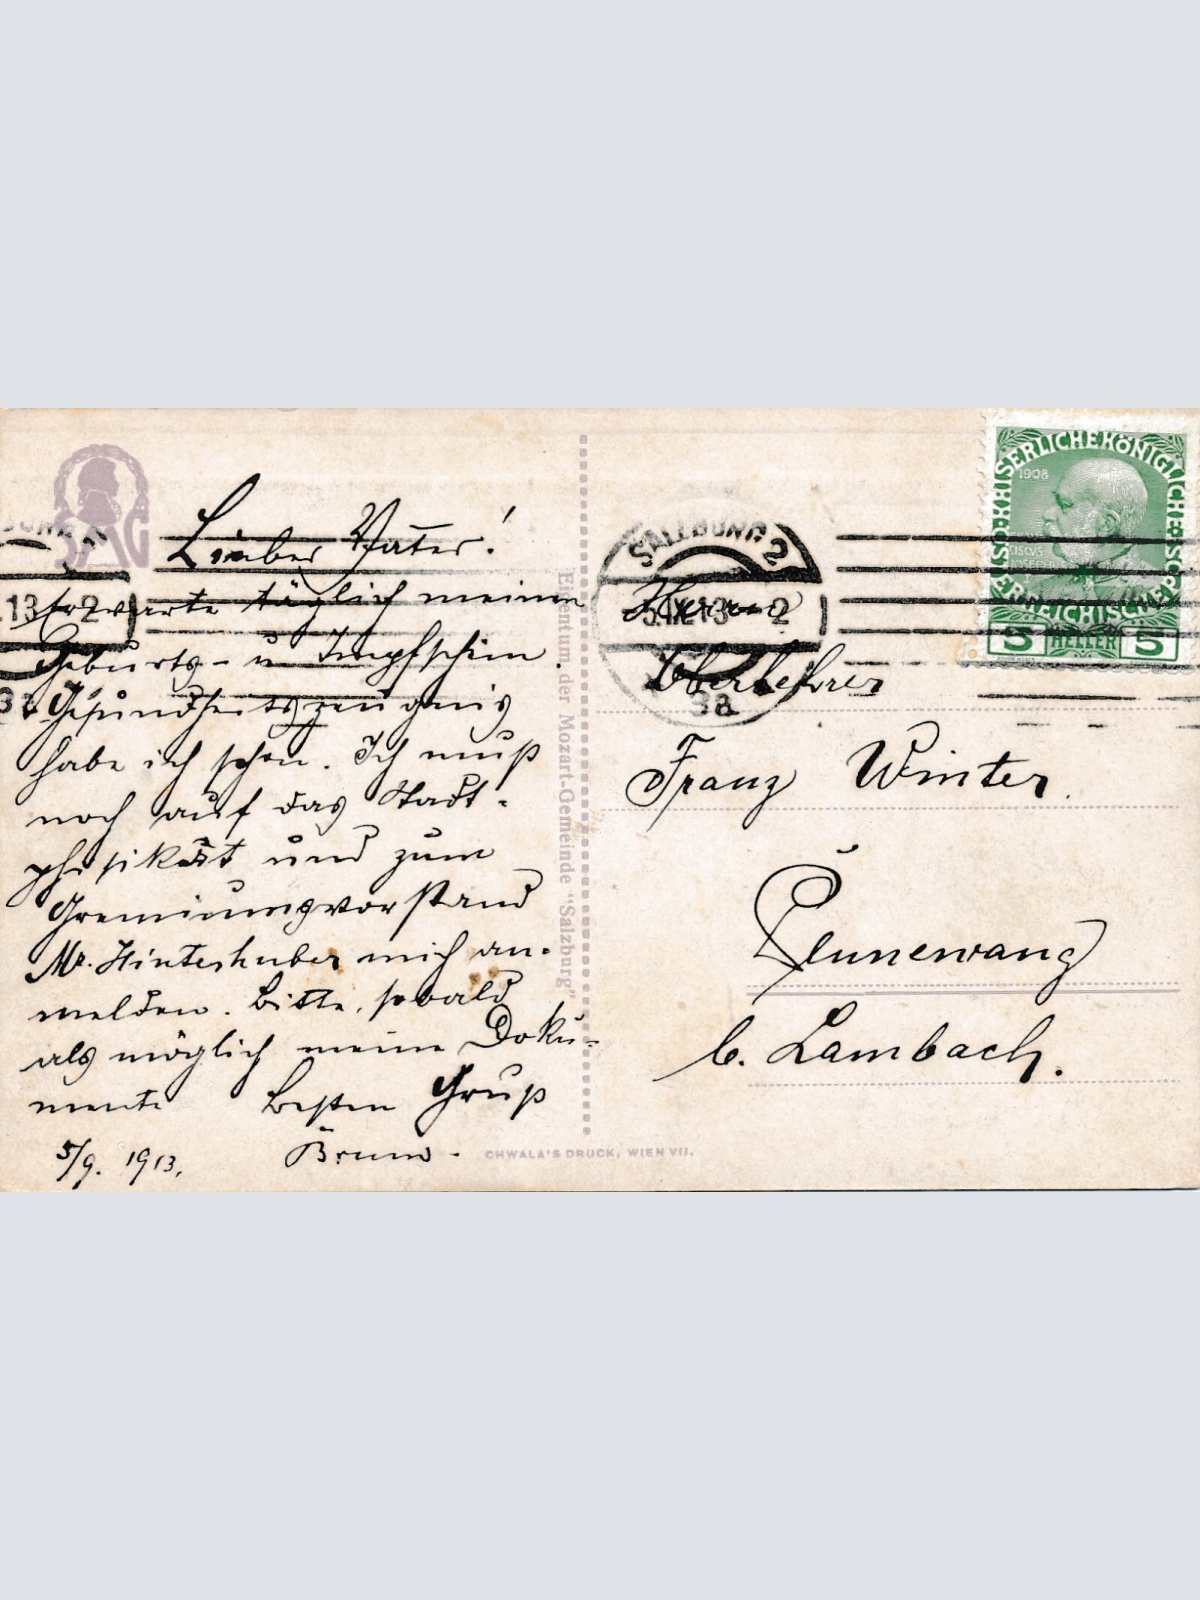 Lieber Vater!
Erwarte täglich meinen
Geburts- u Impfschein.
Gesundheitszeugnis
habe ich schon. Ich muß
noch auf das Stadt-
phisikat und zum
Gremiumsvorstand
Mr. Hinterhuber mich an-
melden. Bitte, sobald
als möglich meine Doku-
mente Besten Gruß
5/9. 1913. Bruno.
Eigentum der Mozart-Gemeinde "Salzburg"
CHWALA'S DRUCK, WIEN VII.
SALZBURG 2
5.IX.13 2
3a
KAISERLICHE KÖNIGLICHE
ÖSTERREICHISCHE POST
1908
5 HELLER 5
Herrn
Oberlehrer
Franz Winter.
Pennewang
b. Lambach.